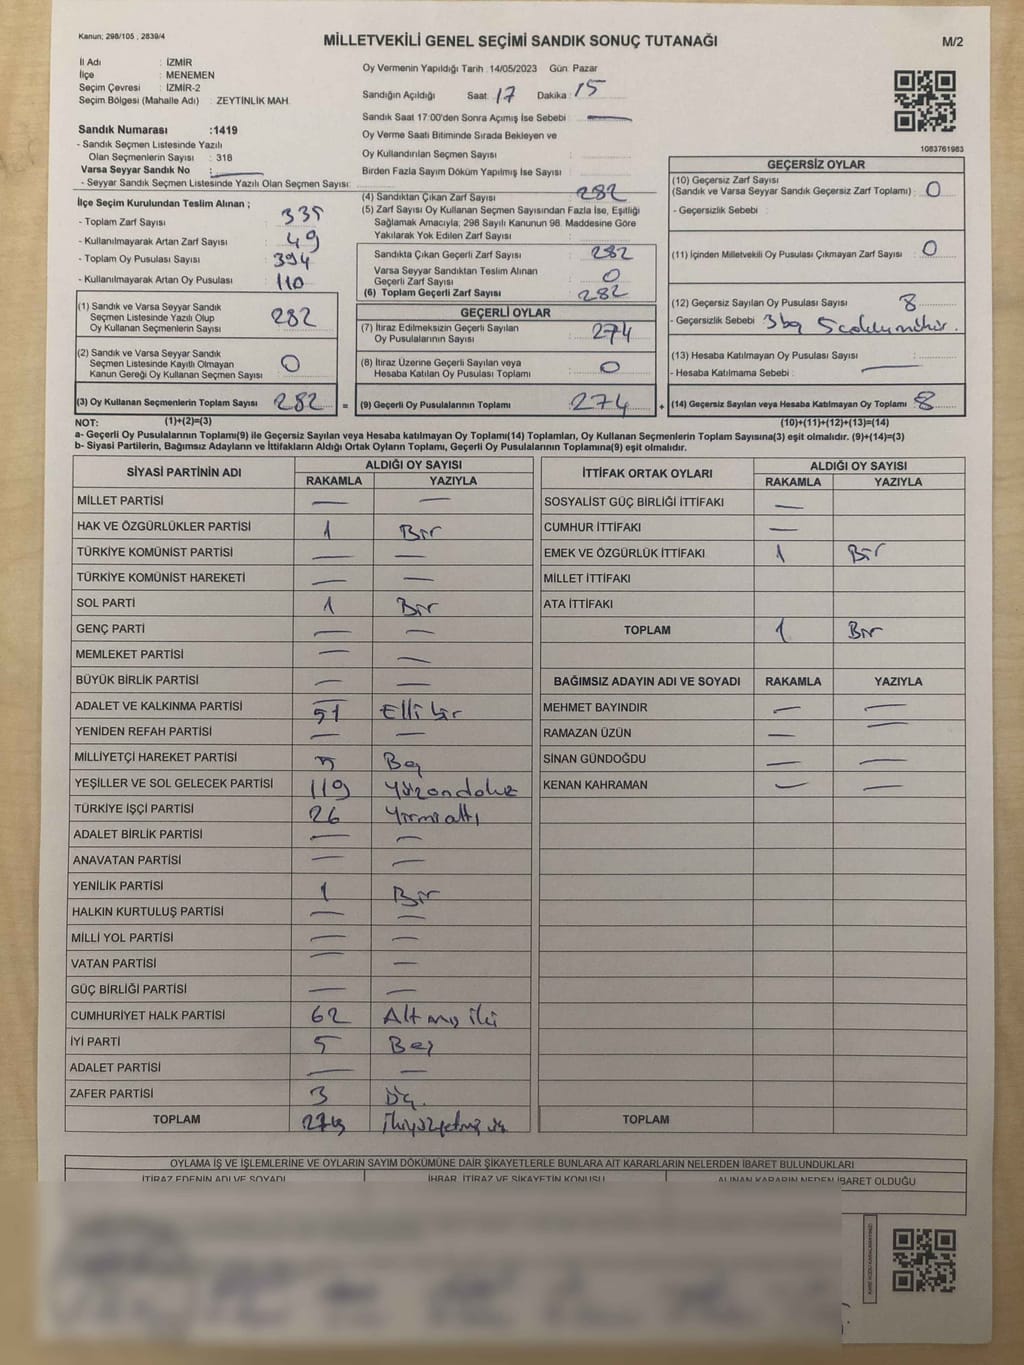 Kanun; 298/105 , 2839/4
MİLLETVEKİLİ GENEL SEÇİMİ SANDIK SONUÇ TUTANAĞI
M/2
İl Adı : İZMİR
İlçe : MENEMEN
Seçim Çevresi : İZMİR-2
Seçim Bölgesi (Mahalle Adı) : ZEYTİNLİK MAH.
Sandık Numarası :1419
- Sandık Seçmen Listesinde Yazılı
Olan Seçmenlerin Sayısı : 318
Varsa Seyyar Sandık No :
- Seyyar Sandık Seçmen Listesinde Yazılı Olan Seçmen Sayısı:
Oy Vermenin Yapıldığı Tarih :14/05/2023 Gün: Pazar
Sandığın Açıldığı Saat: 17 Dakika : 15
Sandık Saat 17:00'den Sonra Açımış İse Sebebi :
Oy Verme Saati Bitiminde Sırada Bekleyen ve
Oy Kullandırılan Seçmen Sayısı :
Birden Fazla Sayım Döküm Yapılmış İse Sayısı :
1083761983
İlçe Seçim Kurulundan Teslim Alınan ;
- Toplam Zarf Sayısı : 335
- Kullanılmayarak Artan Zarf Sayısı : 49
- Toplam Oy Pusulası Sayısı : 394
- Kullanılmayarak Artan Oy Pusulası : 110
(1) Sandık ve Varsa Seyyar Sandık
Seçmen Listesinde Yazılı Olup
Oy Kullanan Seçmenlerin Sayısı : 282
(2) Sandık ve Varsa Seyyar Sandık
Seçmen Listesinde Kayıtlı Olmayan
Kanun Gereği Oy Kullanan Seçmen Sayısı : 0
(3) Oy Kullanan Seçmenlerin Toplam Sayısı : 282 =
(4) Sandıktan Çıkan Zarf Sayısı : 282
(5) Zarf Sayısı Oy Kullanan Seçmen Sayısından Fazla İse, Eşitliği
Sağlamak Amacıyla; 298 Sayılı Kanunun 98. Maddesine Göre
Yakılarak Yok Edilen Zarf Sayısı :
Sandıkta Çıkan Geçerli Zarf Sayısı : 282
Varsa Seyyar Sandıktan Teslim Alınan
Geçerli Zarf Sayısı : 0
(6) Toplam Geçerli Zarf Sayısı : 282
GEÇERLİ OYLAR
(7) İtiraz Edilmeksizin Geçerli Sayılan
Oy Pusulalarının Sayısı : 274
(8) İtiraz Üzerine Geçerli Sayılan veya
Hesaba Katılan Oy Pusulası Toplamı : 0
(9) Geçerli Oy Pusulalarının Toplamı : 274 +
GEÇERSİZ OYLAR
(10) Geçersiz Zarf Sayısı
(Sandık ve Varsa Seyyar Sandık Geçersiz Zarf Toplamı) : 0
- Geçersizlik Sebebi :
(11) İçinden Milletvekili Oy Pusulası Çıkmayan Zarf Sayısı : 0
(12) Geçersiz Sayılan Oy Pusulası Sayısı : 8
- Geçersizlik Sebebi : 3 boş 5
(13) Hesaba Katılmayan Oy Pusulası Sayısı :
- Hesaba Katılmama Sebebi :
(14) Geçersiz Sayılan veya Hesaba Katılmayan Oy Toplamı : 8
NOT: (1)+(2)=(3) (10)+(11)+(12)+(13)=(14)
a- Geçerli Oy Pusulalarının Toplamı(9) ile Geçersiz Sayılan veya Hesaba katılmayan Oy Toplamı(14) Toplamları, Oy Kullanan Seçmenlerin Toplam Sayısına(3) eşit olmalıdır. (9)+(14)=(3)
b- Siyasi Partilerin, Bağımsız Adayların ve İttifakların Aldığı Ortak Oyların Toplamı, Geçerli Oy Pusulalarının Toplamına(9) eşit olmalıdır.
SİYASİ PARTİNİN ADI ALDIĞI OY SAYISI
RAKAMLA YAZIYLA
MİLLET PARTİSİ — —
HAK VE ÖZGÜRLÜKLER PARTİSİ 1 Bir
TÜRKİYE KOMÜNİST PARTİSİ — —
TÜRKİYE KOMÜNİST HAREKETİ — —
SOL PARTİ 1 Bir
GENÇ PARTİ — —
MEMLEKET PARTİSİ — —
BÜYÜK BİRLİK PARTİSİ — —
ADALET VE KALKINMA PARTİSİ 51 Elli bir
YENİDEN REFAH PARTİSİ — —
MİLLİYETÇİ HAREKET PARTİSİ 5 Beş
YEŞİLLER VE SOL GELECEK PARTİSİ 119 Yüzondokuz
TÜRKİYE İŞÇİ PARTİSİ 26 Yirmialtı
ADALET BİRLİK PARTİSİ — —
ANAVATAN PARTİSİ — —
YENİLİK PARTİSİ 1 Bir
HALKIN KURTULUŞ PARTİSİ — —
MİLLİ YOL PARTİSİ — —
VATAN PARTİSİ — —
GÜÇ BİRLİĞİ PARTİSİ — —
CUMHURİYET HALK PARTİSİ 62 Altmış iki
İYİ PARTİ 5 Beş
ADALET PARTİSİ — —
ZAFER PARTİSİ 3 Üç.
TOPLAM İkiyüzyetmiş
İTTİFAK ORTAK OYLARI ALDIĞI OY SAYISI
RAKAMLA YAZIYLA
SOSYALİST GÜÇ BİRLİĞİ İTTİFAKI —
CUMHUR İTTİFAKI —
EMEK VE ÖZGÜRLÜK İTTİFAKI 1 Bir
MİLLET İTTİFAKI
ATA İTTİFAKI
TOPLAM 1 Bir
BAĞIMSIZ ADAYIN ADI VE SOYADI RAKAMLA YAZIYLA
MEHMET BAYINDIR — —
RAMAZAN ÜZÜN — —
SİNAN GÜNDOĞDU — —
KENAN KAHRAMAN — —
TOPLAM
OYLAMA İŞ VE İŞLEMLERİNE VE OYLARIN SAYIM DÖKÜMÜNE DAİR ŞİKAYETLERLE BUNLARA AİT KARARLARIN NELERDEN İBARET BULUNDUKLARI
İTİRAZ EDENİN ADI VE SOYADI İHBAR, İTİRAZ VE ŞİKAYETİN KONUSU ALINAN KARARIN NEDEN İBARET OLDUĞU